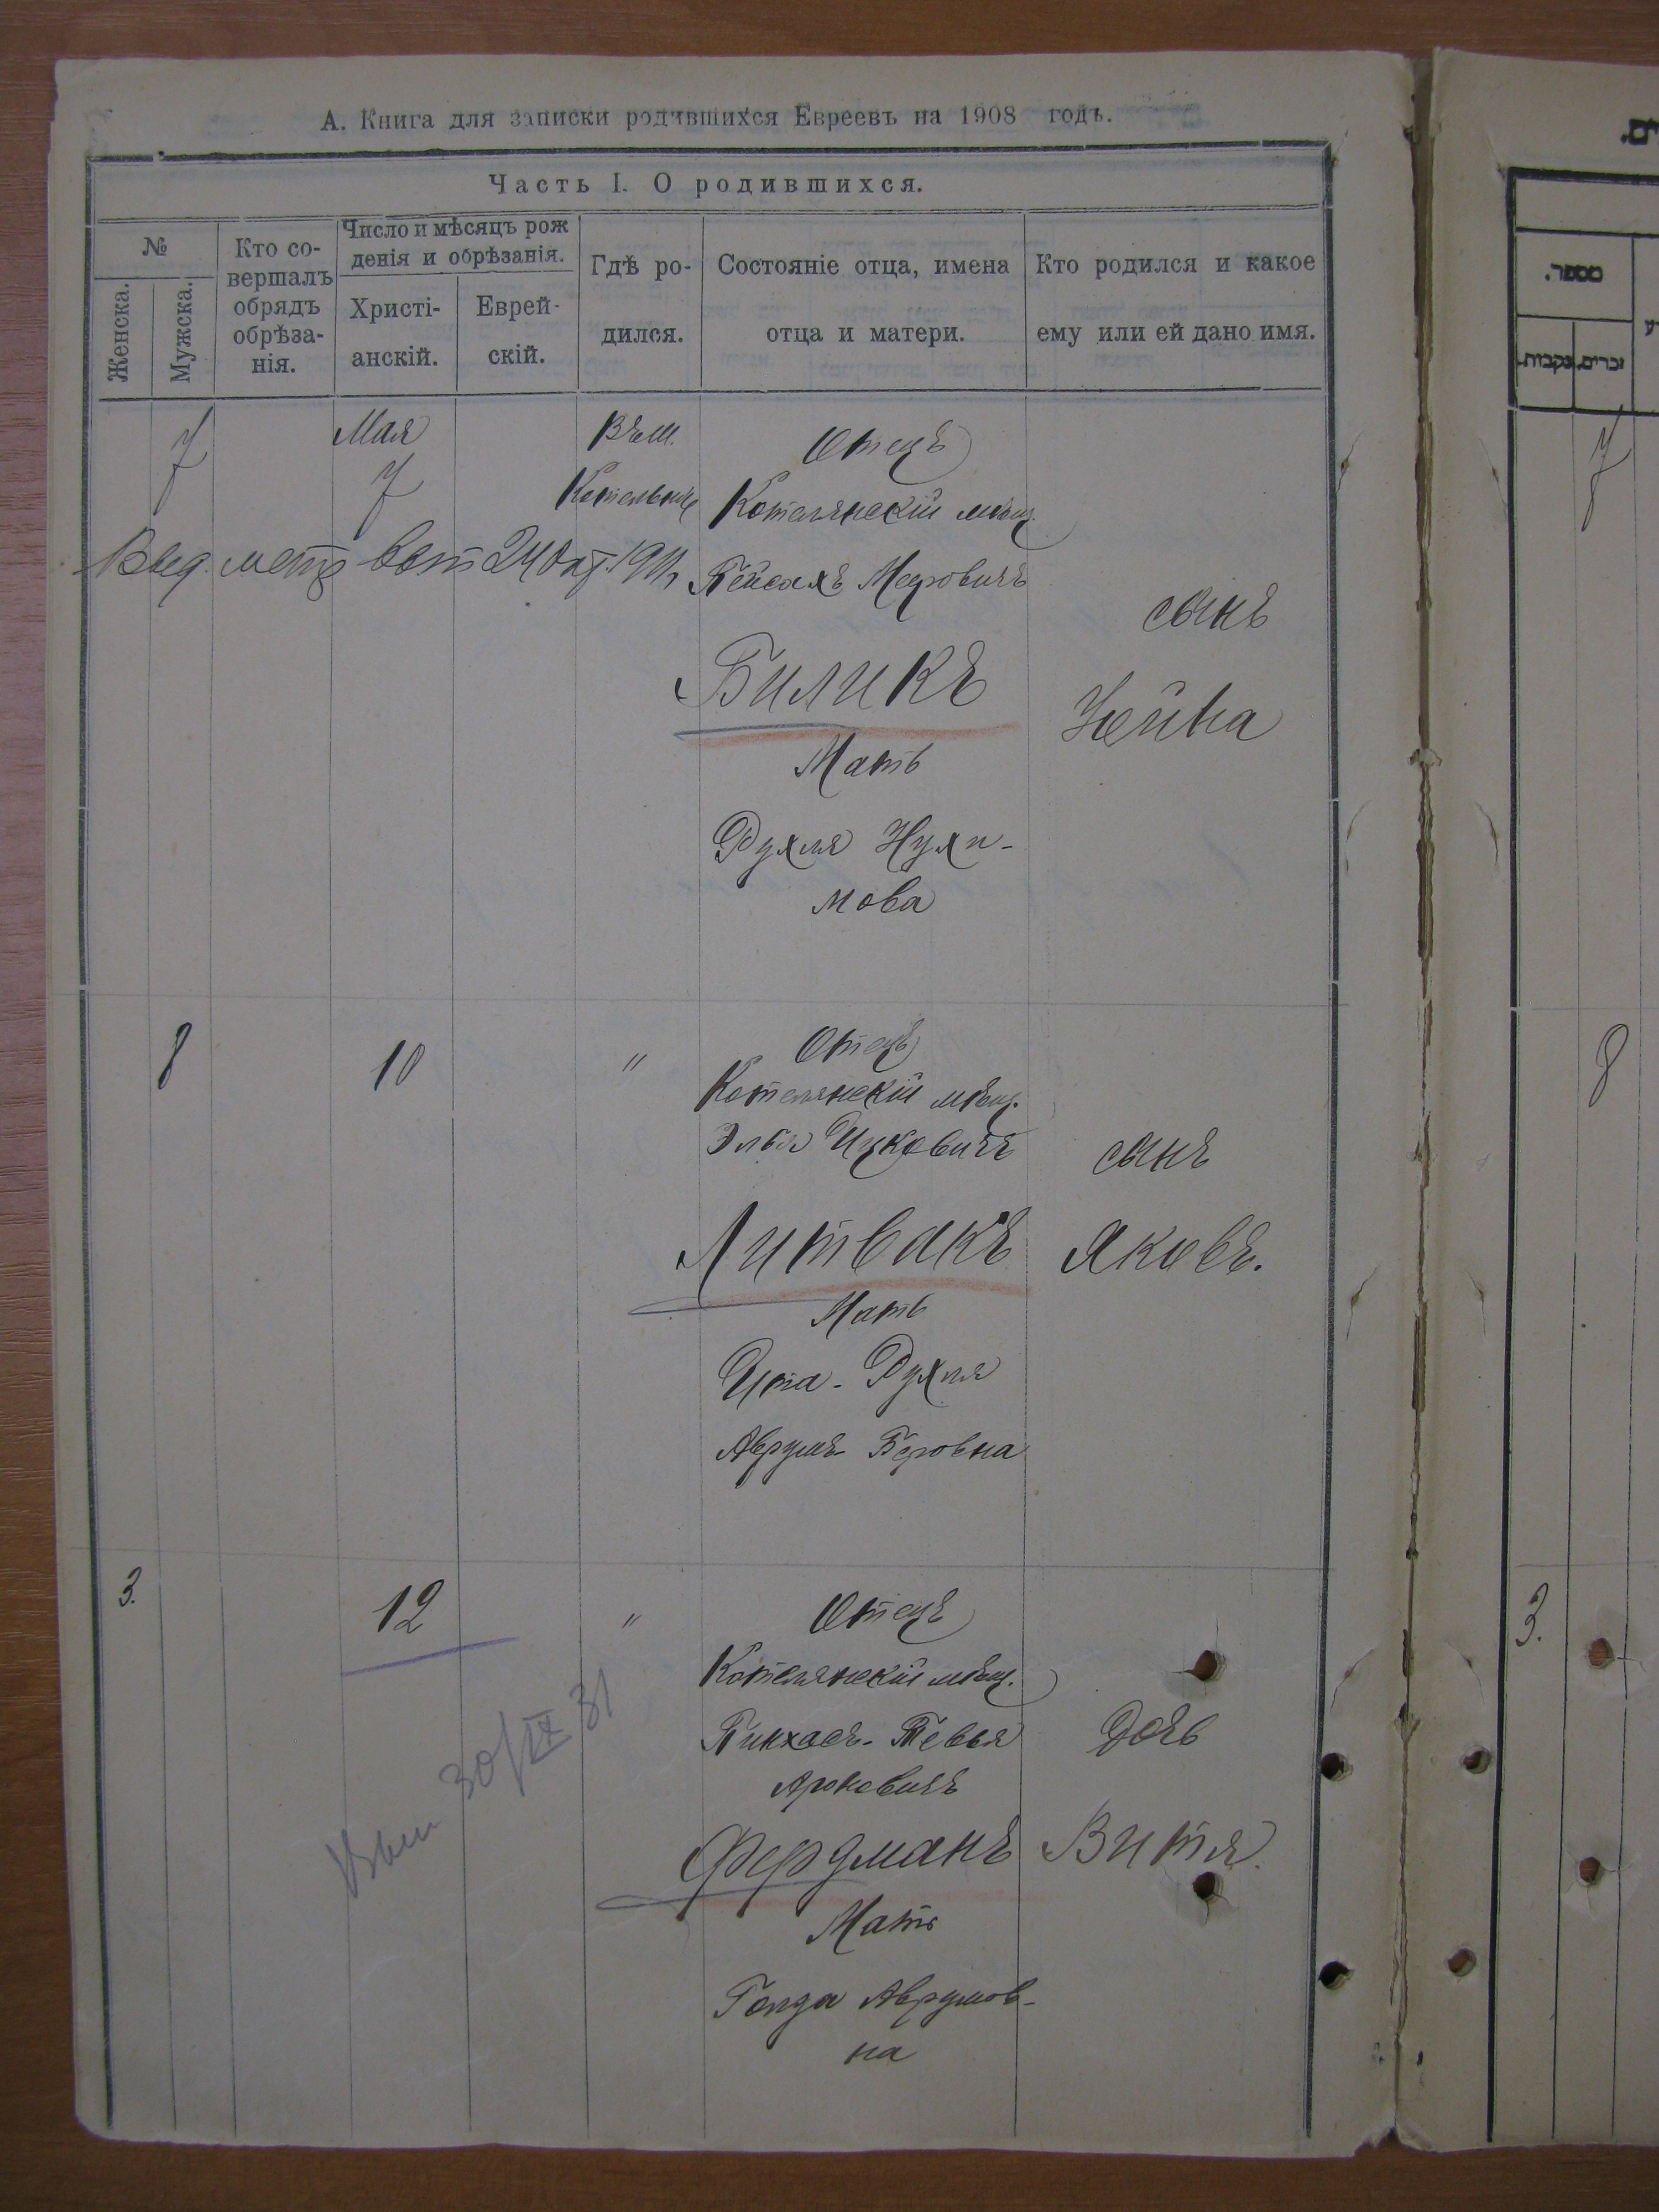 А. Книга для записки родившихся Евреевъ на 1908 годъ.
Часть I. О родившихся.
№
Женска.
Мужска.
Кто со-
вершалъ
обрядъ
обрѣза-
нія.
Число и мѣсяцъ рож
денія и обрѣзанія.
Христі-
анскій.
Еврей-
скій.
Гдѣ ро-
дился.
Состояніе отца, имена
отца и матери.
Кто родился и какое
ему или ей дано имя.
7
Мая
7
Въ м.
Котельнѣ
Отецъ
Котелянскій мѣщ.
Пейсахъ Меровичъ
Биликъ
Мать
Рухля Нухи-
мова
сынъ
Хейна
Выд. метр. вып 24 Окт. 1911
8
10
"
Отецъ
Котелянскій мѣщ.
Элья Ицковичъ
Литвакъ
Мать
Ита-Рухля
Аврумъ-Беровна
сынъ
Яковъ.
3.
12
"
Отецъ
Котелянскій мѣщ.
Пинхасъ-Тевья
Ароновичъ
Фердманъ
Мать
Голда Аврумов-
на
Дочь
Витя.
30/IX 31
מספר.
זכרים.
נקבות.
7
8
3.